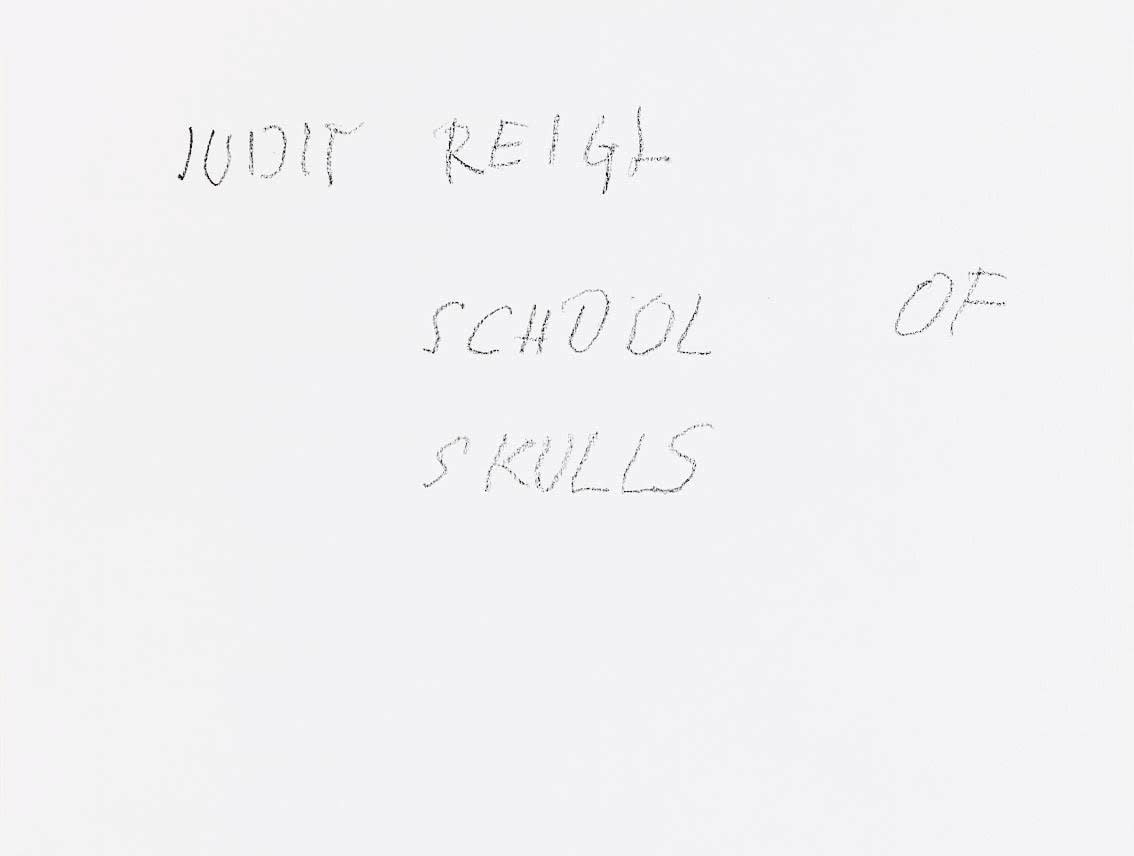 JUDIT REIGL
SCHOOL OF
SKULLS